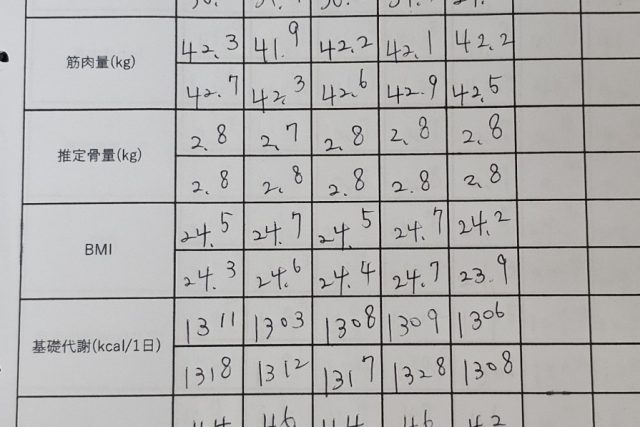 筋肉量(kg) 42.3 41.9 42.2 42.1 42.2
42.7 42.3 42.6 42.9 42.5
推定骨量(kg) 2.8 2.7 2.8 2.8 2.8
2.8 2.8 2.8 2.8 2.8
BMI 24.5 24.7 24.5 24.7 24.2
24.3 24.6 24.4 24.7 23.9
基礎代謝(kcal/1日) 1311 1303 1308 1309 1306
1318 1312 1317 1328 1308
44 46 44 46 42